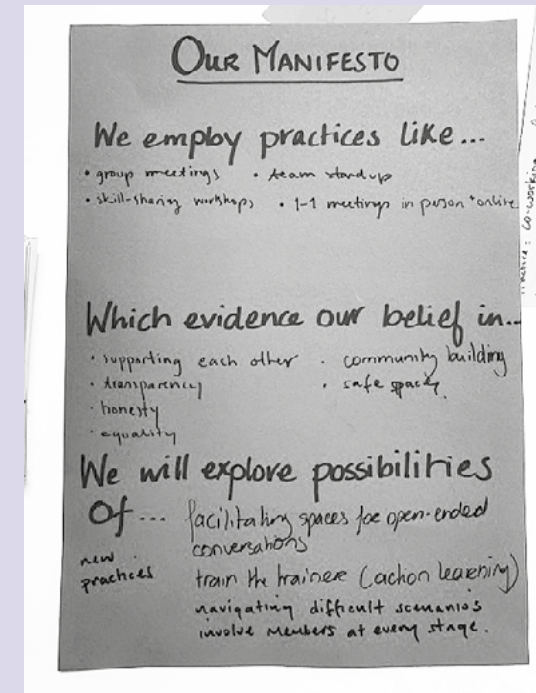 OUR MANIFESTO
We employ practices like...
• group meetings • team standup
• skill-sharing workshops • 1-1 meetings in person + online
Which evidence our belief in...
• supporting each other • community building
• transparency • safe space
• honesty
• equality
We will explore possibilities
Of... facilitating spaces for open-ended
conversations
new
practices
train the trainers (action learning)
navigating difficult scenarios
involve members at every stage.
co-working